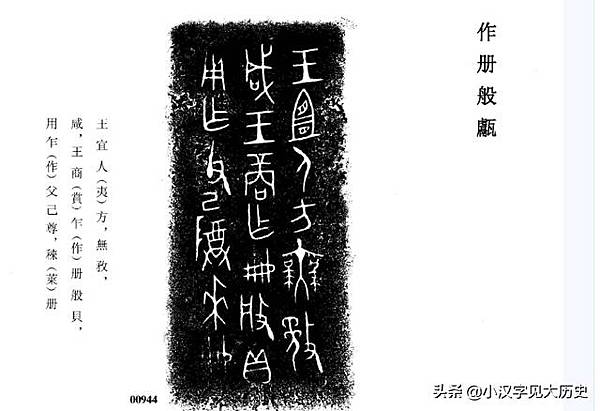 作册般甗
王宜人（夷）方，無敄，
咸，王商（賞）乍（作）册般貝，
用乍（作）父己尊，𬓛（萊）册
00944
头条 @小汉字见大历史